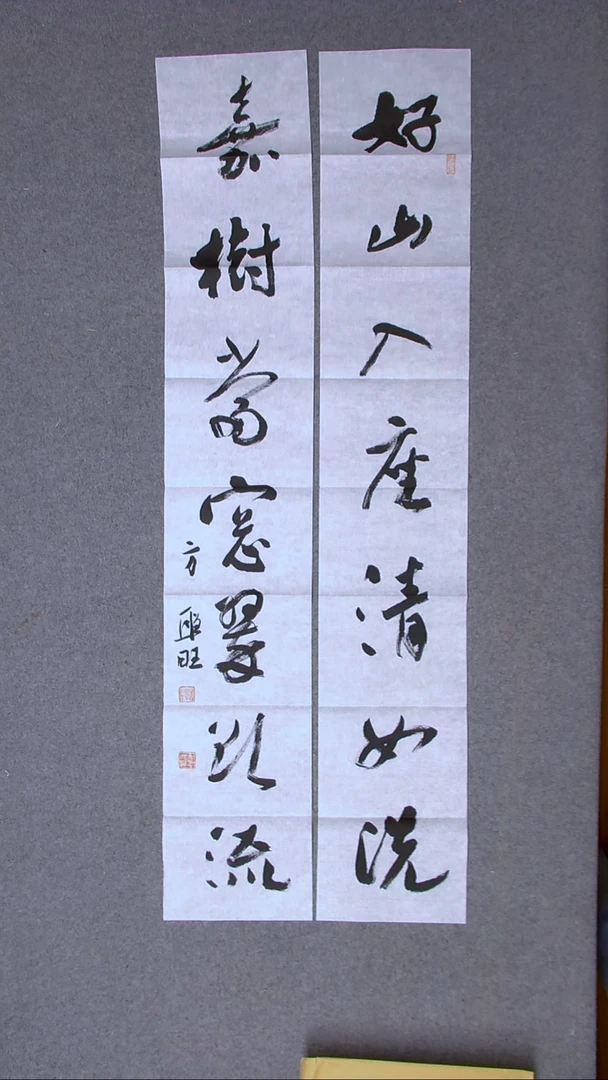 好山入座清如洗
嘉樹當窓翠欲流
方
旺